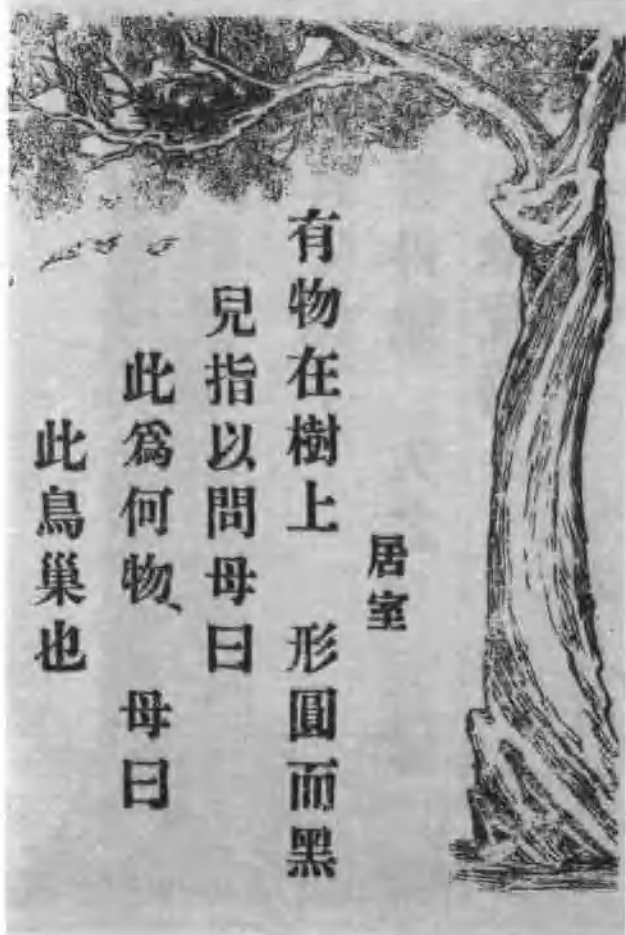 居室
有物在樹上 形圓而黑
兒指以問母曰
此爲何物、 母曰
此鳥巢也